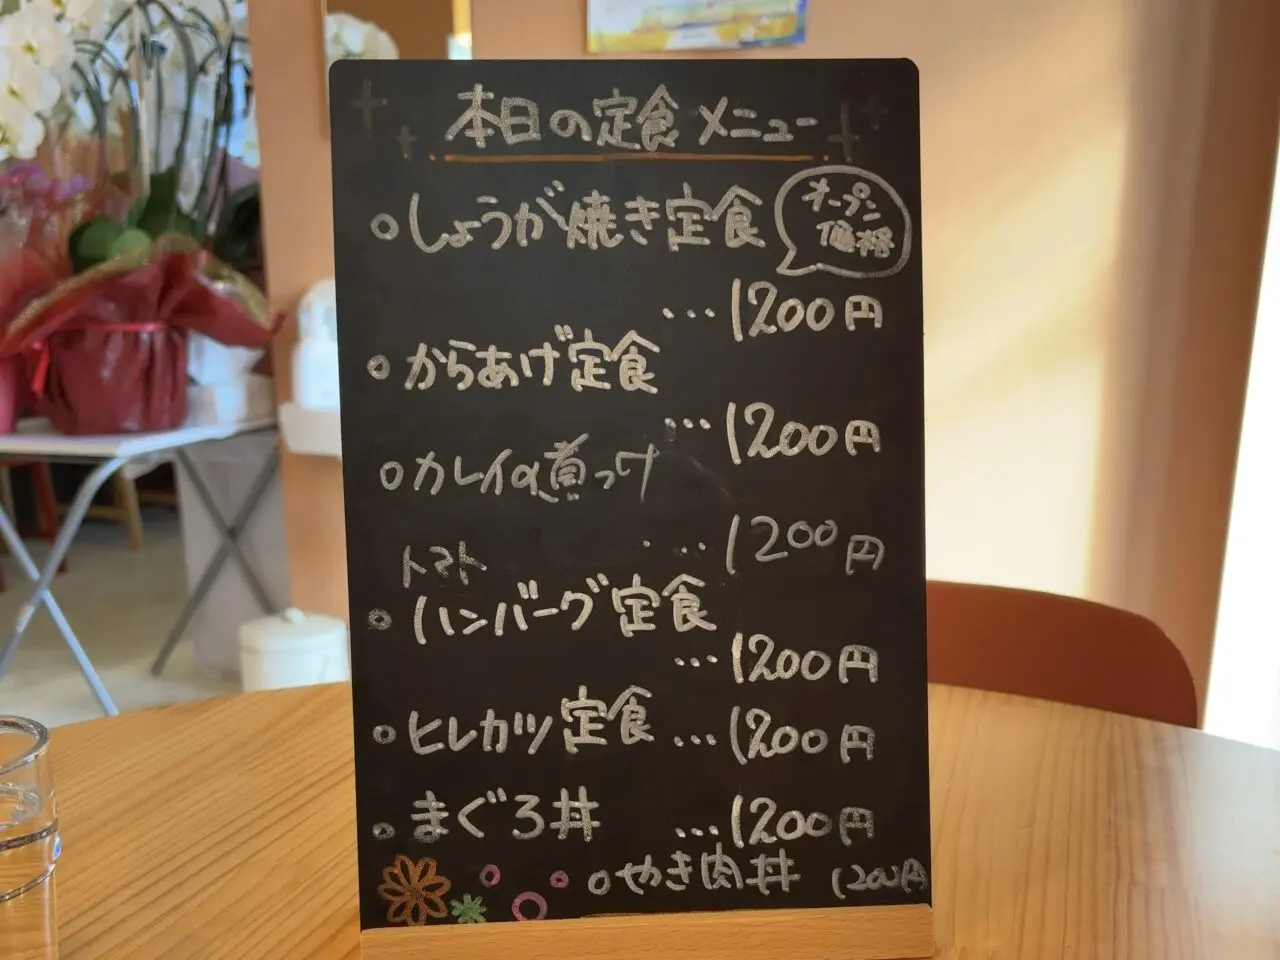 本日の定食メニュー
○しょうが焼き定食
オープン
価格
…1200円
○からあげ定食
…1200円
○カレイの煮つけ
…1200円
トマト
○ハンバーグ定食
…1200円
○ヒレカツ定食…1200円
○まぐろ丼…1200円
○やき肉丼 1200円